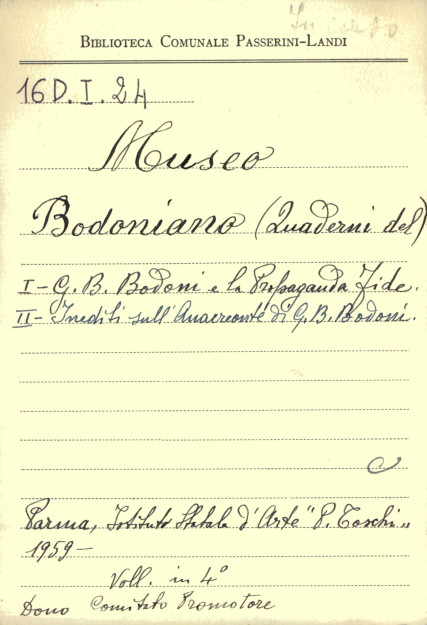 In corso
BIBLIOTECA COMUNALE PASSERINI-LANDI
16 D. I. 24
Museo
Bodoniano (Quaderni del)
I - G. B. Bodoni e la Propaganda Fide.
II - Inediti sull'Anacreonte di G. B. Bodoni.
Parma, Istituto Statale d'Arte "P. Toschi"
1959 -
Voll. in 4°
Dono Comitato Promotore